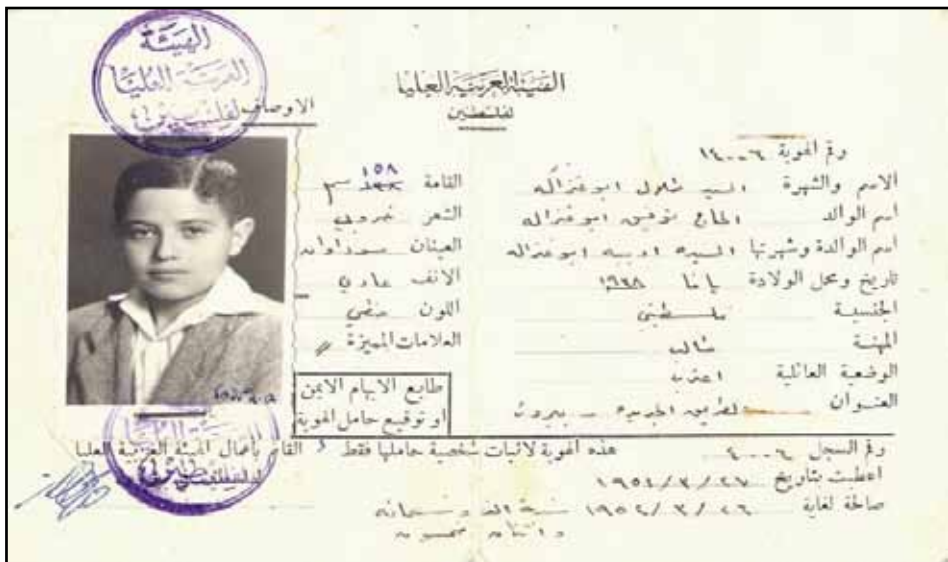 الهيئة
العربية العليا
لفلسطين
الهيئة العربية العليا
لفلسطين
الاوصاف
رقم الهوية ١٤٠٠٦
الاسم والشهرة السيد ابو غزاله
اسم الوالد الحاج توفيق ابو غزاله
اسم الوالدة وشهرتها السيده اديبه ابو غزاله
تاريخ ومحل الولادة يافا ١٩٣٨
الجنسية فلسطيني
المهنة طالب
الوضعية العائلية اعزب
العنوان الطريق الجديده - بيروت
القامة ١٥٨ سم
الشعر خروبي
العينان سوداوان
الانف عادي
اللون حنطي
العلامات المميزة //
طابع الابهام الايمن
او توقيع حامل الهوية
رقم السجل ٤٠٠٦
هذه الهوية لاثبات شخصية حاملها فقط
القائم بأعمال الهيئة العربية العليا
لفلسطين
اعطيت بتاريخ ٢٧/٣/١٩٥١
صالحة لغاية ٢٦/٣/١٩٥٢ سنة الف و تسعمائه
واثنان وخمسون